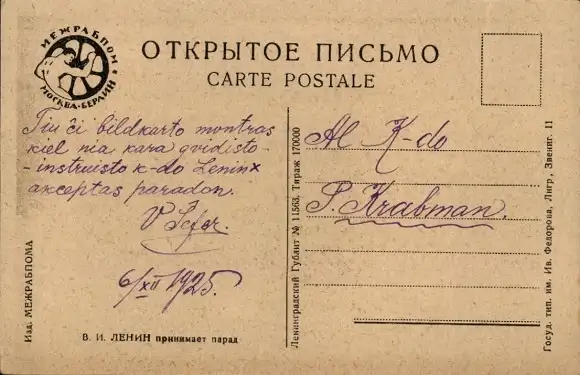 МЕЖРАБПОМ
МОСКВА-БЕРЛИН
ОТКРЫТОЕ ПИСЬМО
CARTE POSTALE
Tiu ĉi bildkarto montras
kiel nia kara gvidisto-
-instruisto k-do Lenin
akceptas paradon.
6/XII 1925.
Изд. МЕЖРАБПОМА
В. И. ЛЕНИН принимает парад
Ленинградский Гублит № 11563. Тираж 170000
Al K-do
P. Krabman.
Госуд. тип. им. Ив. Федорова, Лнгр., Звениг. 11